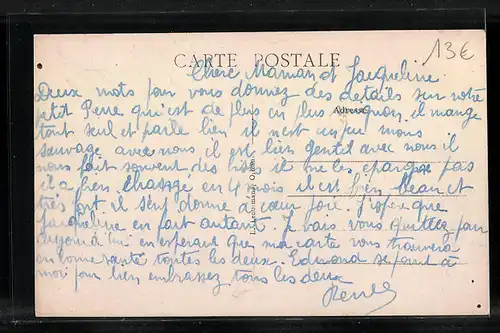 13€
CARTE POSTALE
Chère Maman et Jacqueline
Deux mots pour vous donnez des details sur votre
petit Pierre qu'est de plus en plus mignon, il mange
Adresse
tout seul et parle bien il n'est un peu moins
sauvage avec nous il est bien gentil avec nous il
nous fait souvent des il ne les épargne pas
il a bien changé en 4 mois il est bien beau et
très fort il s'en donne à cœur joie. J'espère que
Jacqueline en fait autant. Je vais vous quittez pour
aujourd'hui en esperant que ma carte vous trouvera
en bonne santé toutes les deux. Edmond se joint à
moi pour bien embrassez tous les deux
Renée